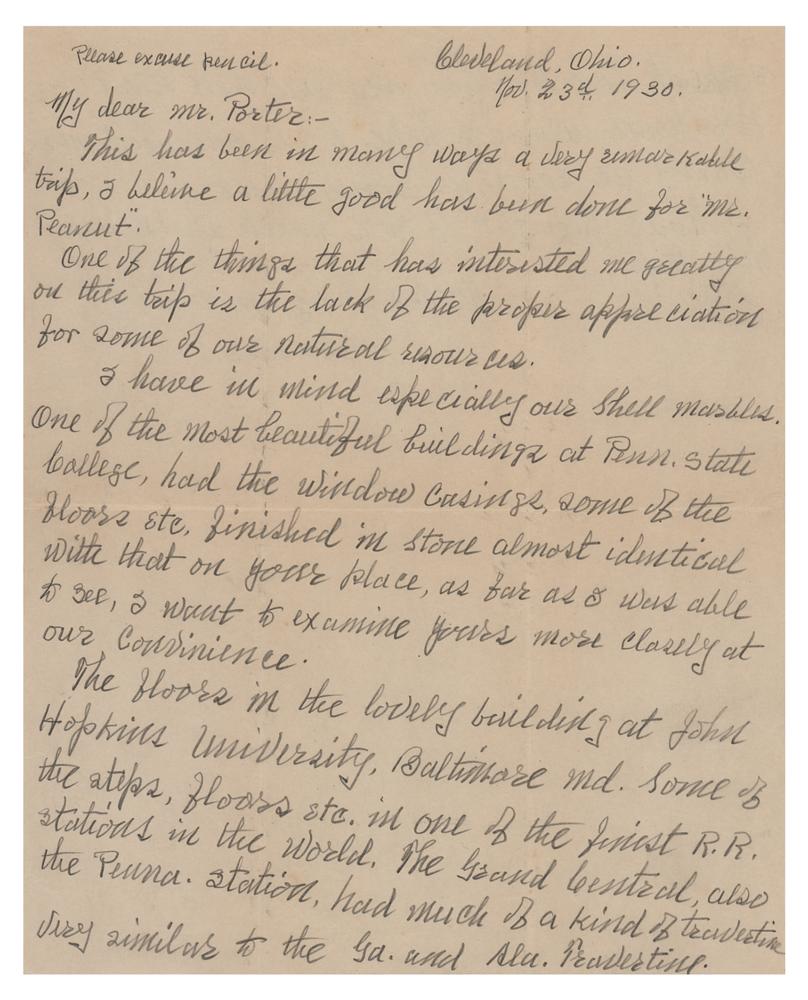 Please excuse pencil.
Cleveland, Ohio.
Nov. 23d, 1930.
My dear mr. Porter:-
This has been in many ways a very remarkable
trip, I beleive a little good has been done for "mr.
Peanut".
One of the things that has interested me greatly
on this trip is the lack of the proper appreciation
for some of our natural resources.
I have in mind especially our Shell marbles.
One of the most beautiful buildings at Penn. State
College, had the window casings, some of the
floors etc, finished in stone almost identical
with that on your place, as far as I was able
to see, I want to examine yours more closely at
our Convinience.
The floors in the lovely building at John
Hopkins University, Baltimore md. Some of
the steps, floors etc. in one of the finest R.R.
stations in the world. The Grand Central, also
the Penna. Station, had much of a kind of travertine
very similar to the Ga. and Ala. Travertine.